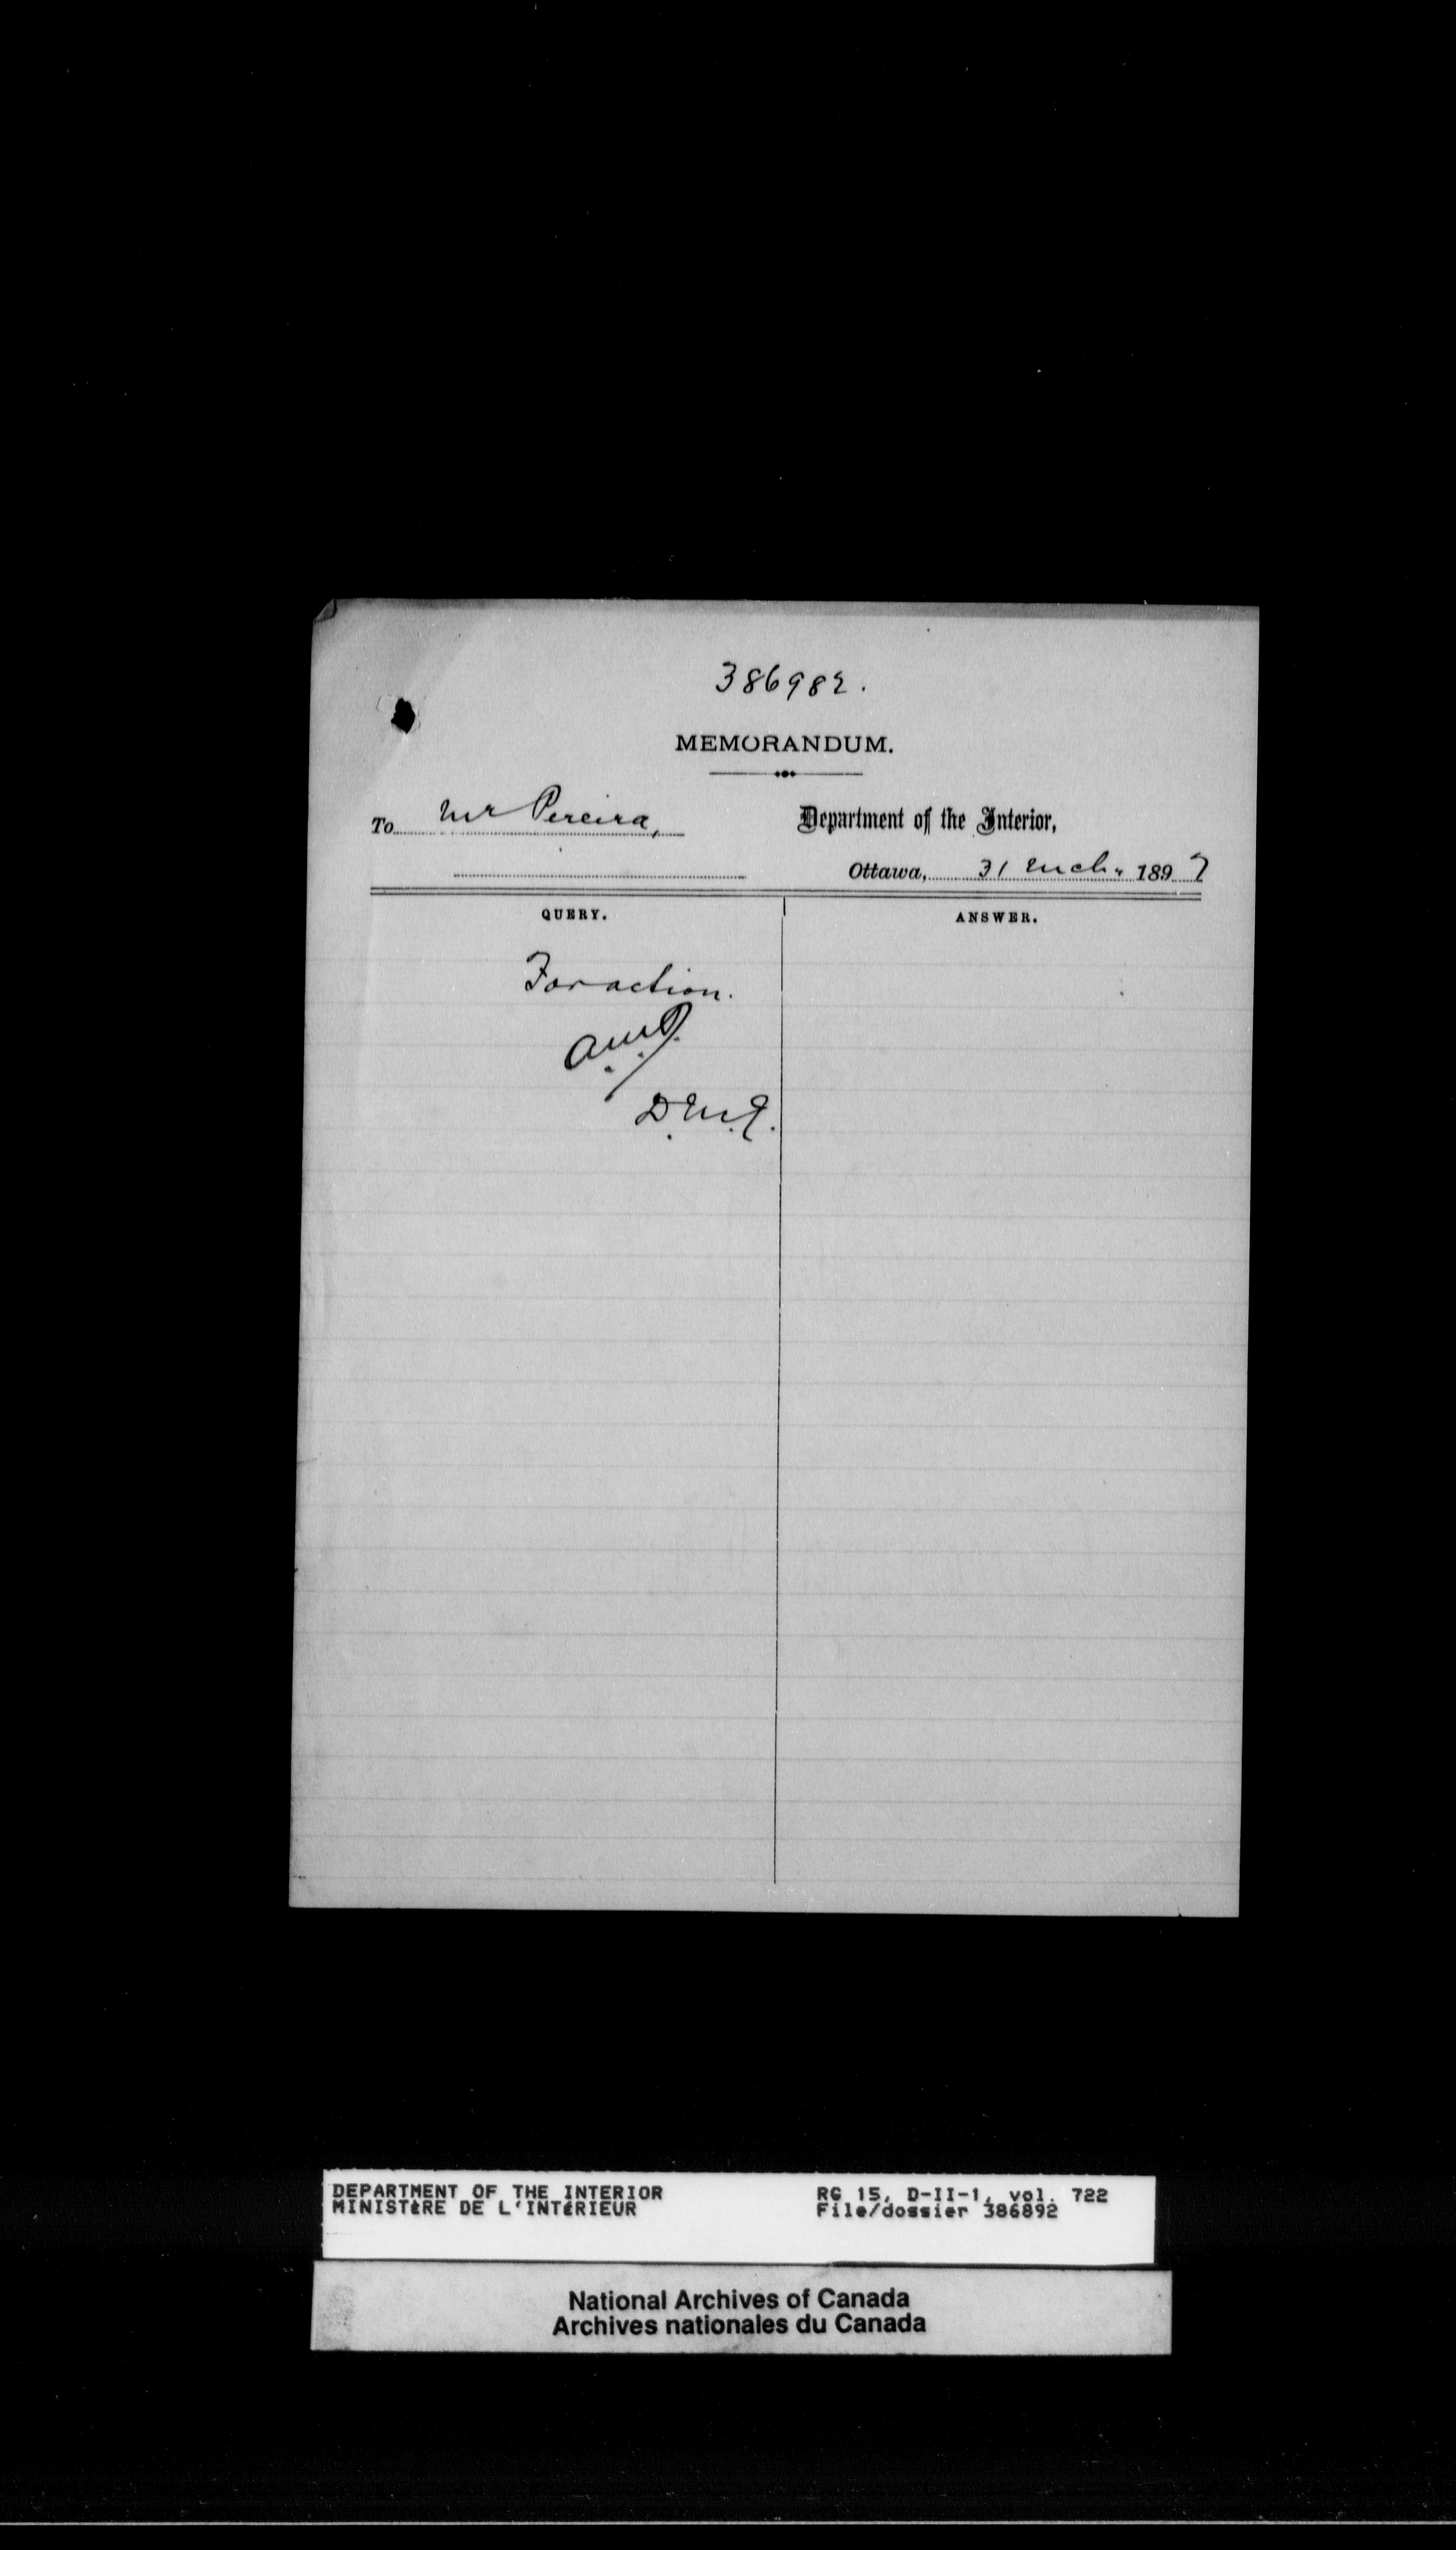 386982.
MEMORANDUM.
To Mr Pereira,
Department of the Interior,
Ottawa, 31 Mch. 1897
QUERY.
ANSWER.
For action.
D.M.I.
DEPARTMENT OF THE INTERIOR
MINISTèRE DE L'INTéRIEUR
RG 15, D-II-1, vol. 722
File/dossier 386892
National Archives of Canada
Archives nationales du Canada